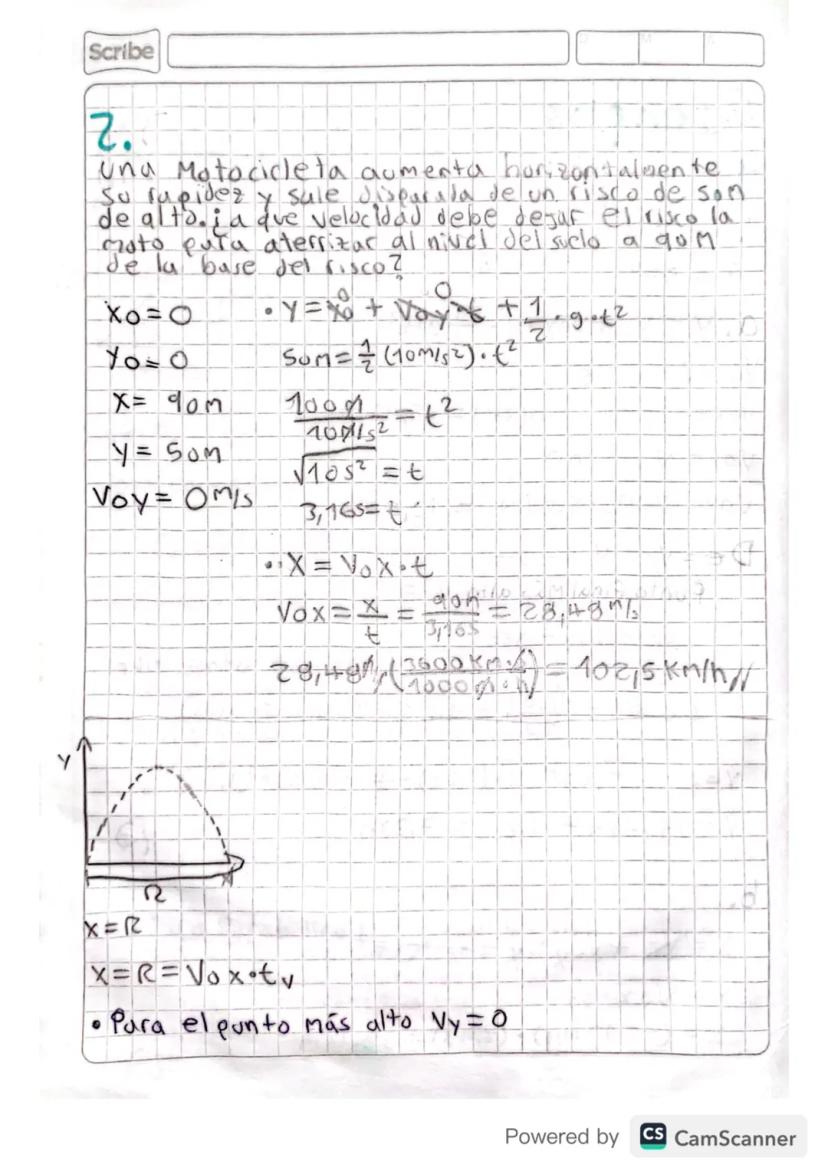 Scribe
2.
Una Motocicleta aumenta horizontalmente
su rapidez y sale disparada de un risco de 50m
de alto. ¿a que velocidad debe dejar el risco la
moto para aterrizar al nivel del suelo a 90m
de la base del risco?
X0=0
• Y = Y0 + V0y t + 1/2 · g · t²
0
0
Y0=0
50m = 1/2 (10m/s²) · t²
X= 90m
100m / 10m/s² = t²
Y= 50m
√10s² = t
V0y= 0m/s
3,16s= t
• X = V0x · t
V0x = x/t = 90m/3,16s = 28,48m/s
28,48m/s (3600 Km·s / 1000m·h) = 102,5 Km/h //
Y
X
R
X=R
X=R=V0x·tv
• Para el punto más alto Vy=0
Powered by CS CamScanner